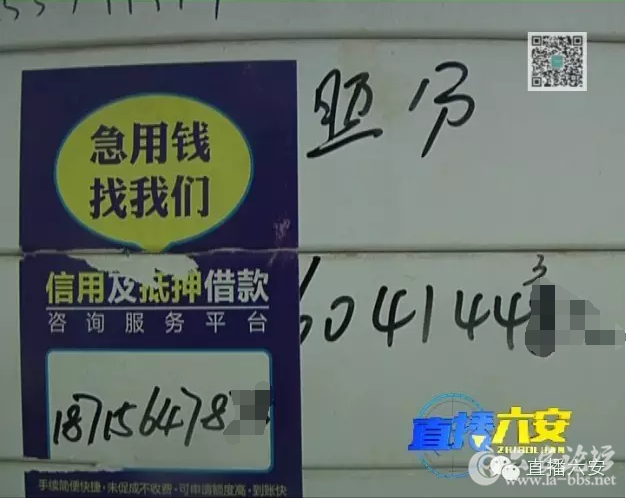 急用钱
找我们
信用及抵押借款
咨询服务平台
187156478
手续简便快捷·未促成不收费·可申请额度高·到账快
6041443
直播六安
ZHIBOLIUAN
直播六安
www.la-bbs.net